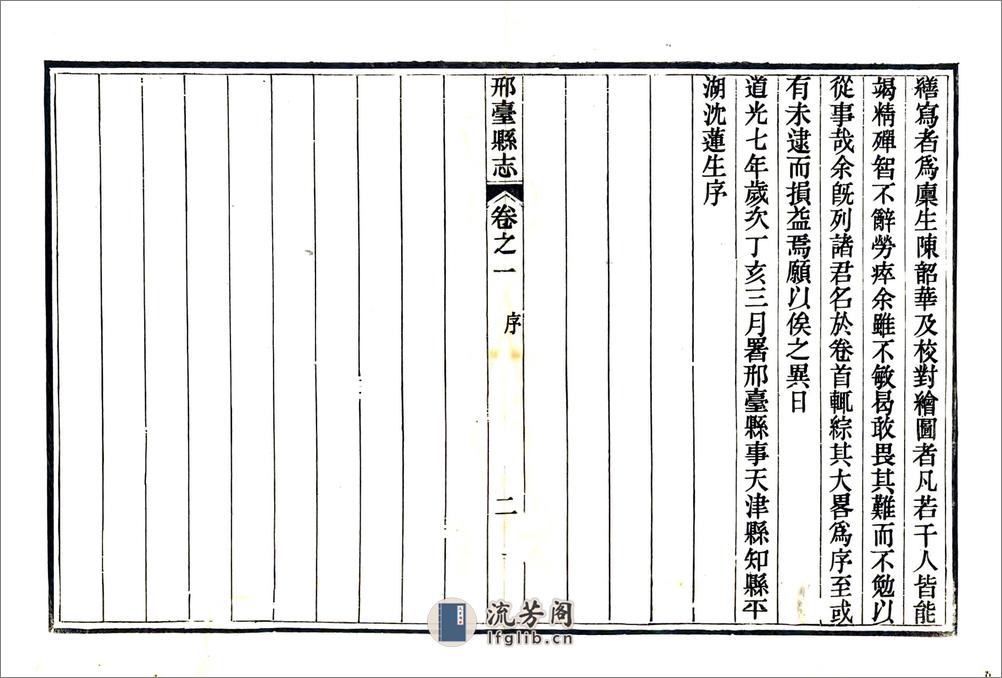 繕寫者爲廩生陳韶華及校對繪圖者凡若干人皆能
竭精殫智不辭勞瘁余雖不敏曷敢畏其難而不勉以
從事哉余旣列諸君名於卷首輒綜其大畧爲序至或
有未逮而損益焉願以俟之異日
道光七年歲次丁亥三月署邢臺縣事天津縣知縣平
湖沈蓮生序
邢臺縣志
卷之一
序
二
流芳阁
lfglib.cn